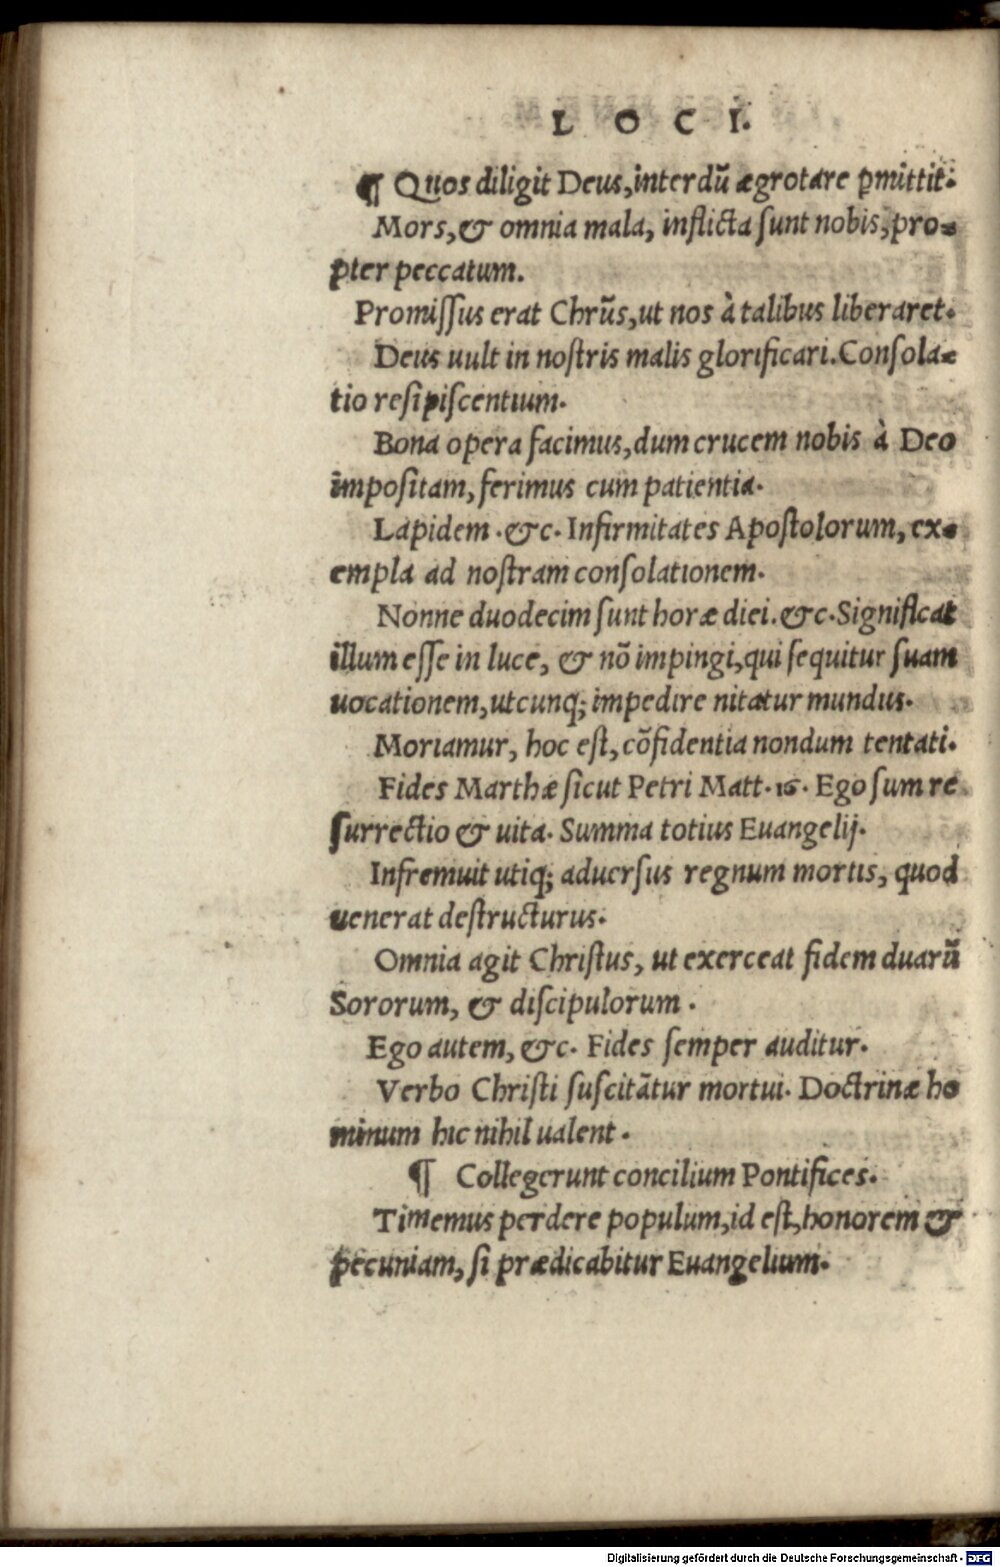 L O C I.
¶ Quos diligit Deus, interdū ægrotare ꝑmittit.
Mors, & omnia mala, inflicta sunt nobis, pro-
pter peccatum.
Promissus erat Chrūs, ut nos à talibus liberaret.
Deus uult in nostris malis glorificari. Consola-
tio resipiscentium.
Bona opera facimus, dum crucem nobis à Deo
impositam, ferimus cum patientia.
Lapidem .&c. Infirmitates Apostolorum, ex-
empla ad nostram consolationem.
Nonne duodecim sunt horæ diei. &c. Significat
illum esse in luce, & nō impingi, qui sequitur suam
uocationem, utcunq; impedire nitatur mundus.
Moriamur, hoc est, cōfidentia nondum tentati.
Fides Marthæ sicut Petri Matt. 16. Ego sum re
surrectio & uita. Summa totius Euangelij.
Infremuit utiq; aduersus regnum mortis, quod
uenerat destructurus.
Omnia agit Christus, ut exerceat fidem duarū
Sororum, & discipulorum.
Ego autem, &c. Fides semper auditur.
Verbo Christi suscitātur mortui. Doctrinæ ho
minum hic nihil ualent.
¶ Collegerunt concilium Pontifices.
Timemus perdere populum, id est, honorem &
pecuniam, si prædicabitur Euangelium.
Digitalisierung gefördert durch die Deutsche Forschungsgemeinschaft - DFG